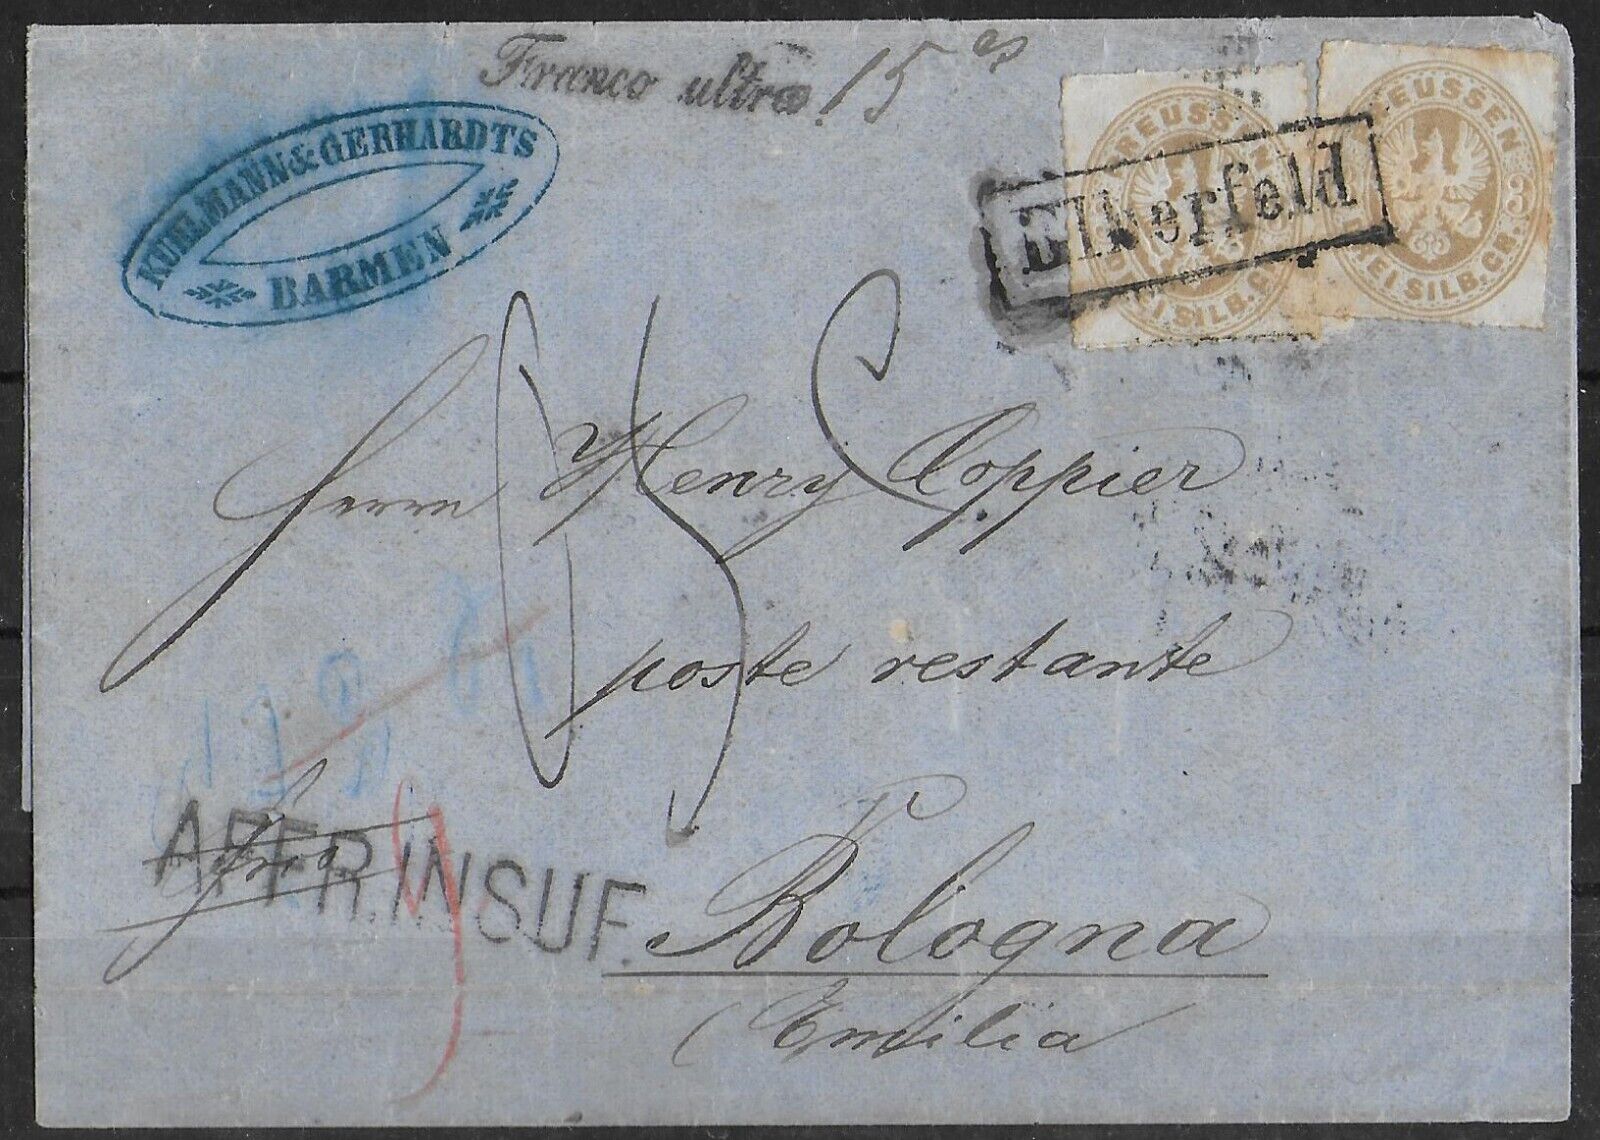 Franco ultra. 15
KUHLMANN & GERHARDTS
BARMEN
PREUSSEN
DREI SILB. GR.
PREUSSEN
DREI SILB. GR.
Elberfeld
Herrn Henry Coppier
poste restante
AFFR. INSUF.
Bologna
Emilia